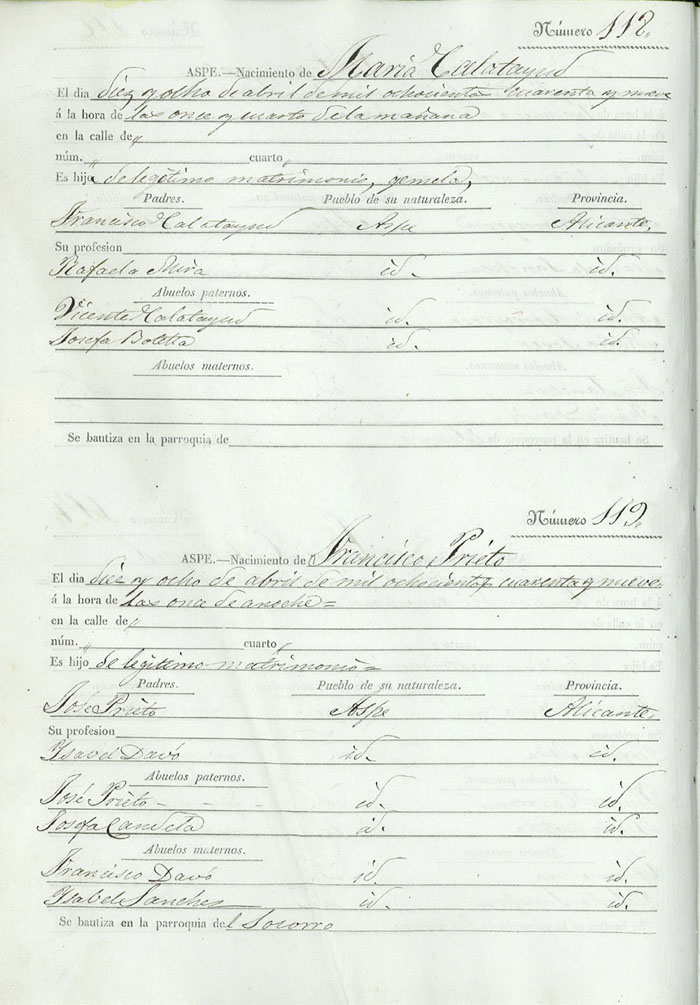 Número 118.
ASPE.—Nacimiento de María Calatayud
El dia diez y ocho de abril de mil ochocientos cuarenta y nueve
á la hora de las once y cuarto de la mañana
en la calle de "
núm. " cuarto "
Es hija de legitimo matrimonio, gemela,
Padres. Pueblo de su naturaleza. Provincia.
Francisco Calatayud Aspe Alicante,
Su profesion
Rafaela Mira id. id.
Abuelos paternos.
Vicente Calatayud id. id.
Josefa Botella id. id.
Abuelos maternos.
Se bautiza en la parroquia de
Número 119.
ASPE.—Nacimiento de Francisco Prieto
El dia diez y ocho de abril de mil ochocientos cuarenta y nueve
á la hora de las once de anoche=
en la calle de "
núm. " cuarto "
Es hijo de legitimo matrimonio=
Padres. Pueblo de su naturaleza. Provincia.
Jose Prieto Aspe Alicante,
Su profesion
Ysavel Davó id. id.
Abuelos paternos.
José Prieto - - - id. id.
Josefa Candela id. id.
Abuelos maternos.
Francisco Davó id. id.
Ysabel Sanchez id. id.
Se bautiza en la parroquia del Socorro